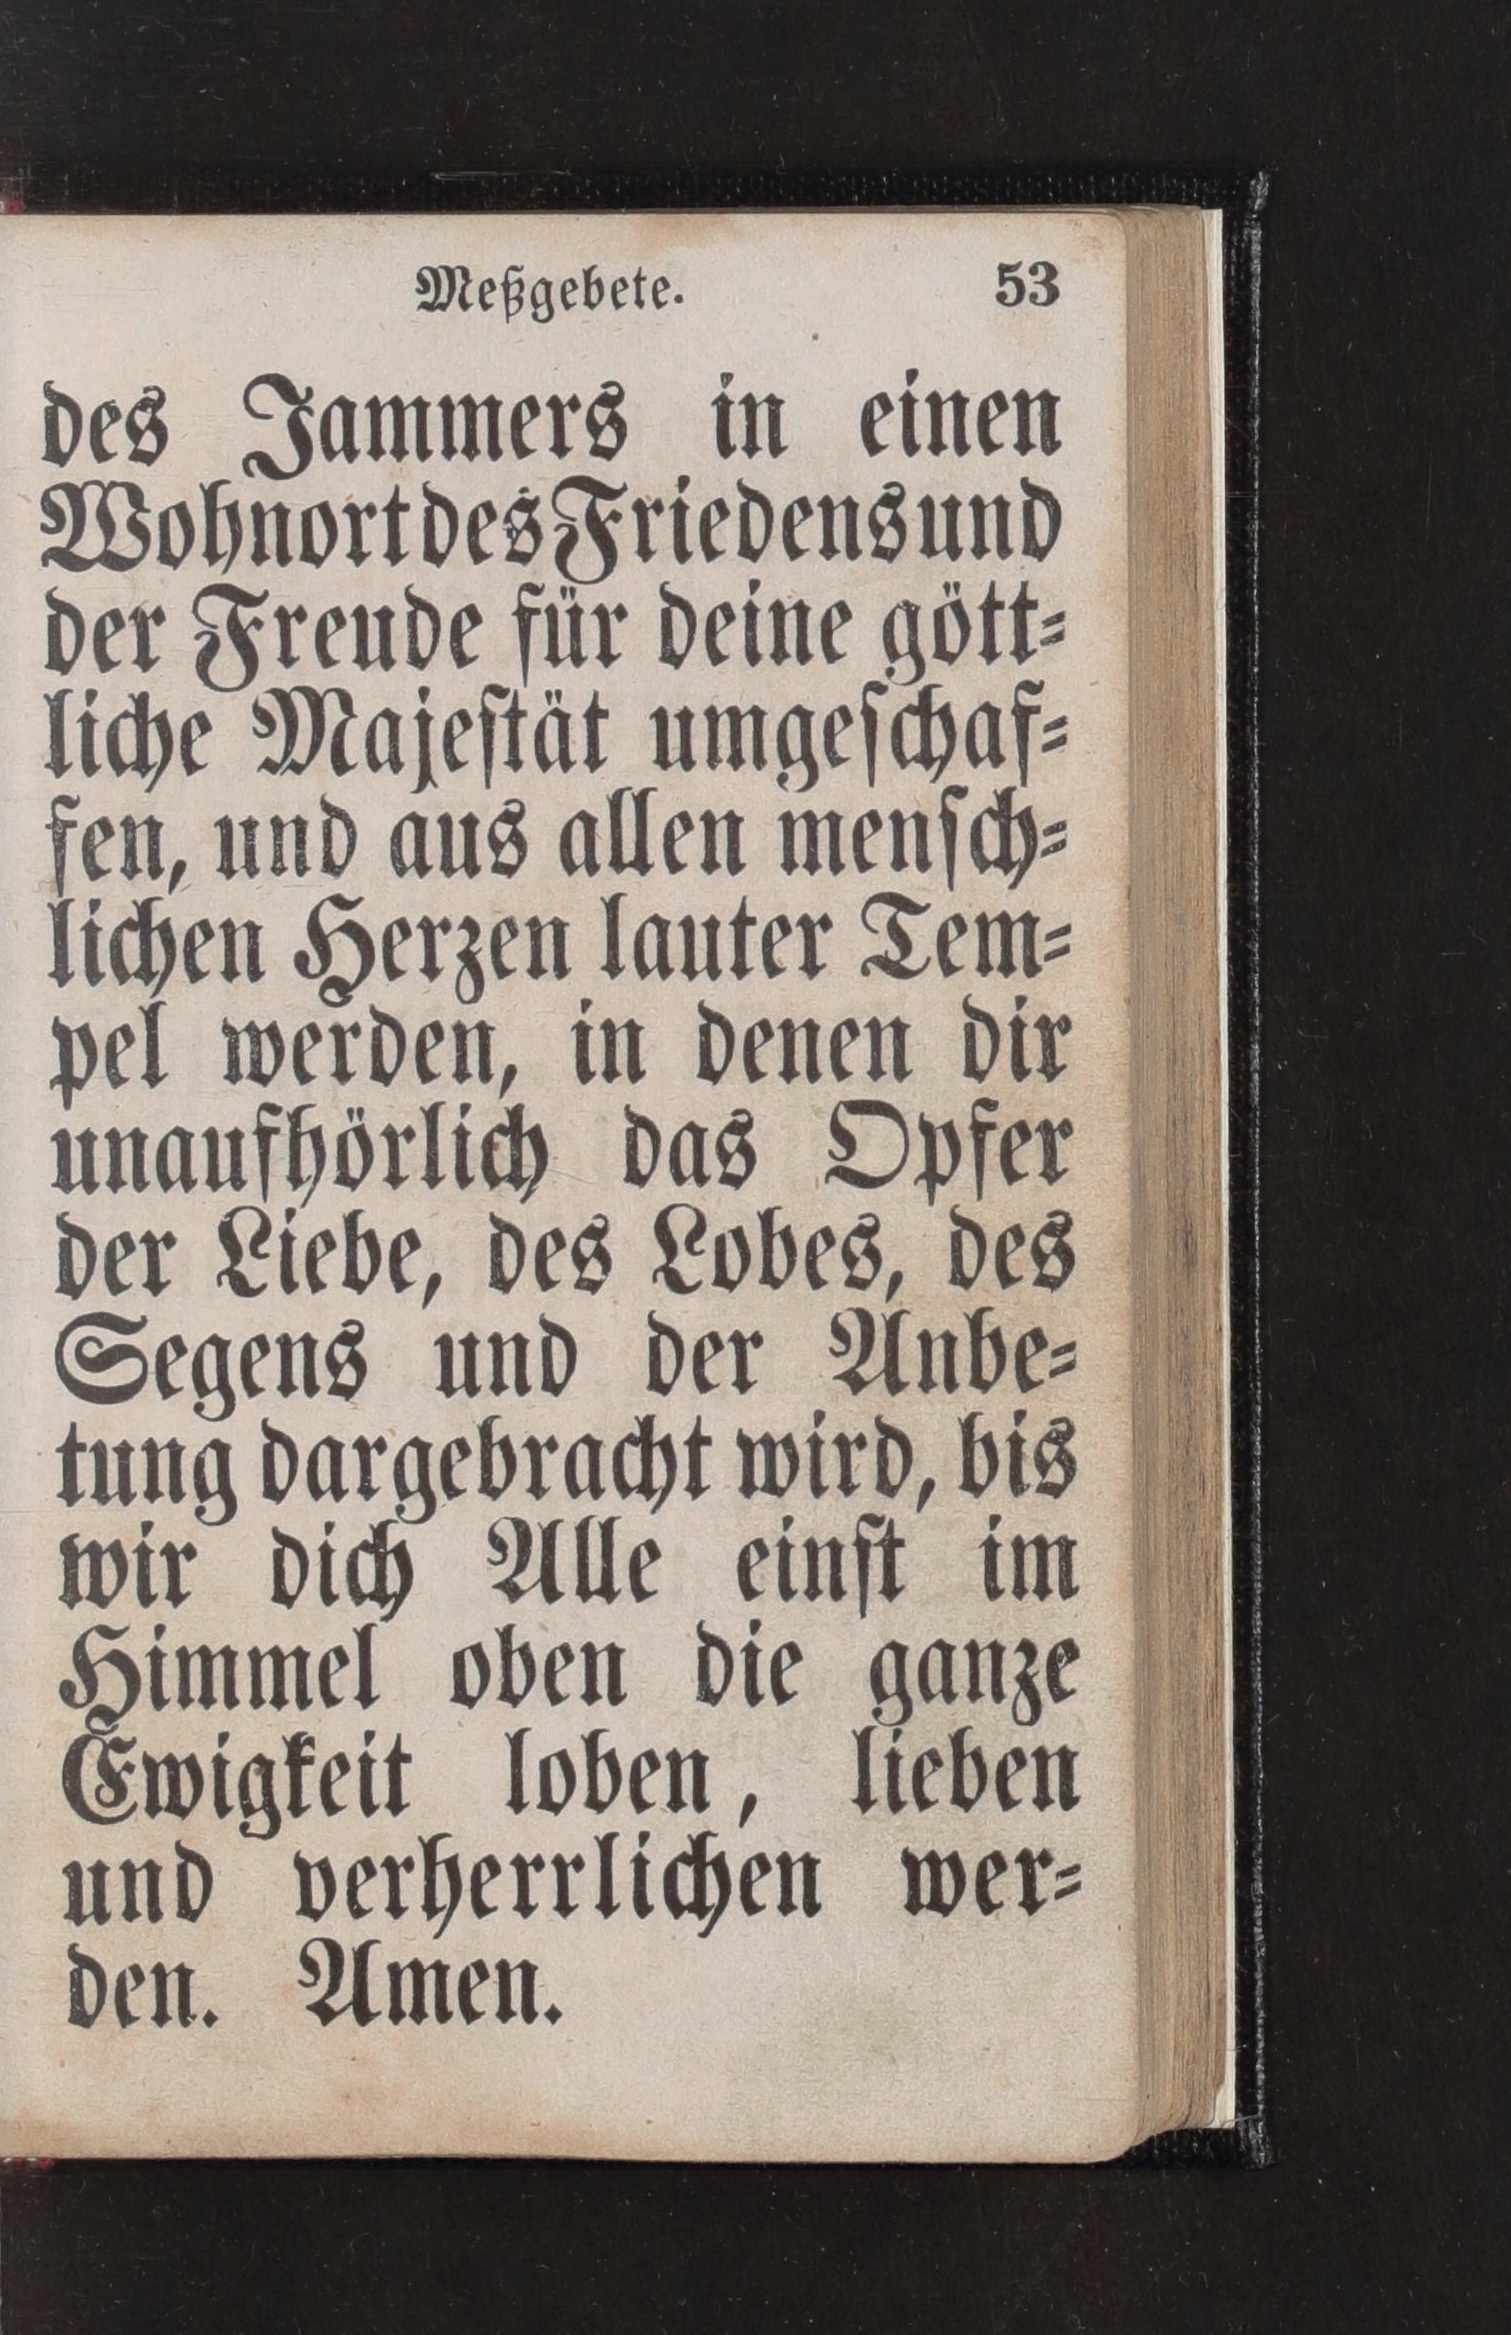 Meßgebete. 53
des Jammers in einen
Wohnort des Friedens und
der Freude für deine gött⸗
liche Majeſtät umgeſchaf⸗
fen, und aus allen menſch⸗
lichen Herzen lauter Tem⸗
pel werden, in denen dir
unaufhörlich das Opfer
der Liebe, des Lobes, des
Segens und der Anbe⸗
tung dargebracht wird, bis
wir dich Alle einſt im
Himmel oben die ganze
Ewigkeit loben, lieben
und verherrlichen wer⸗
den. Amen.